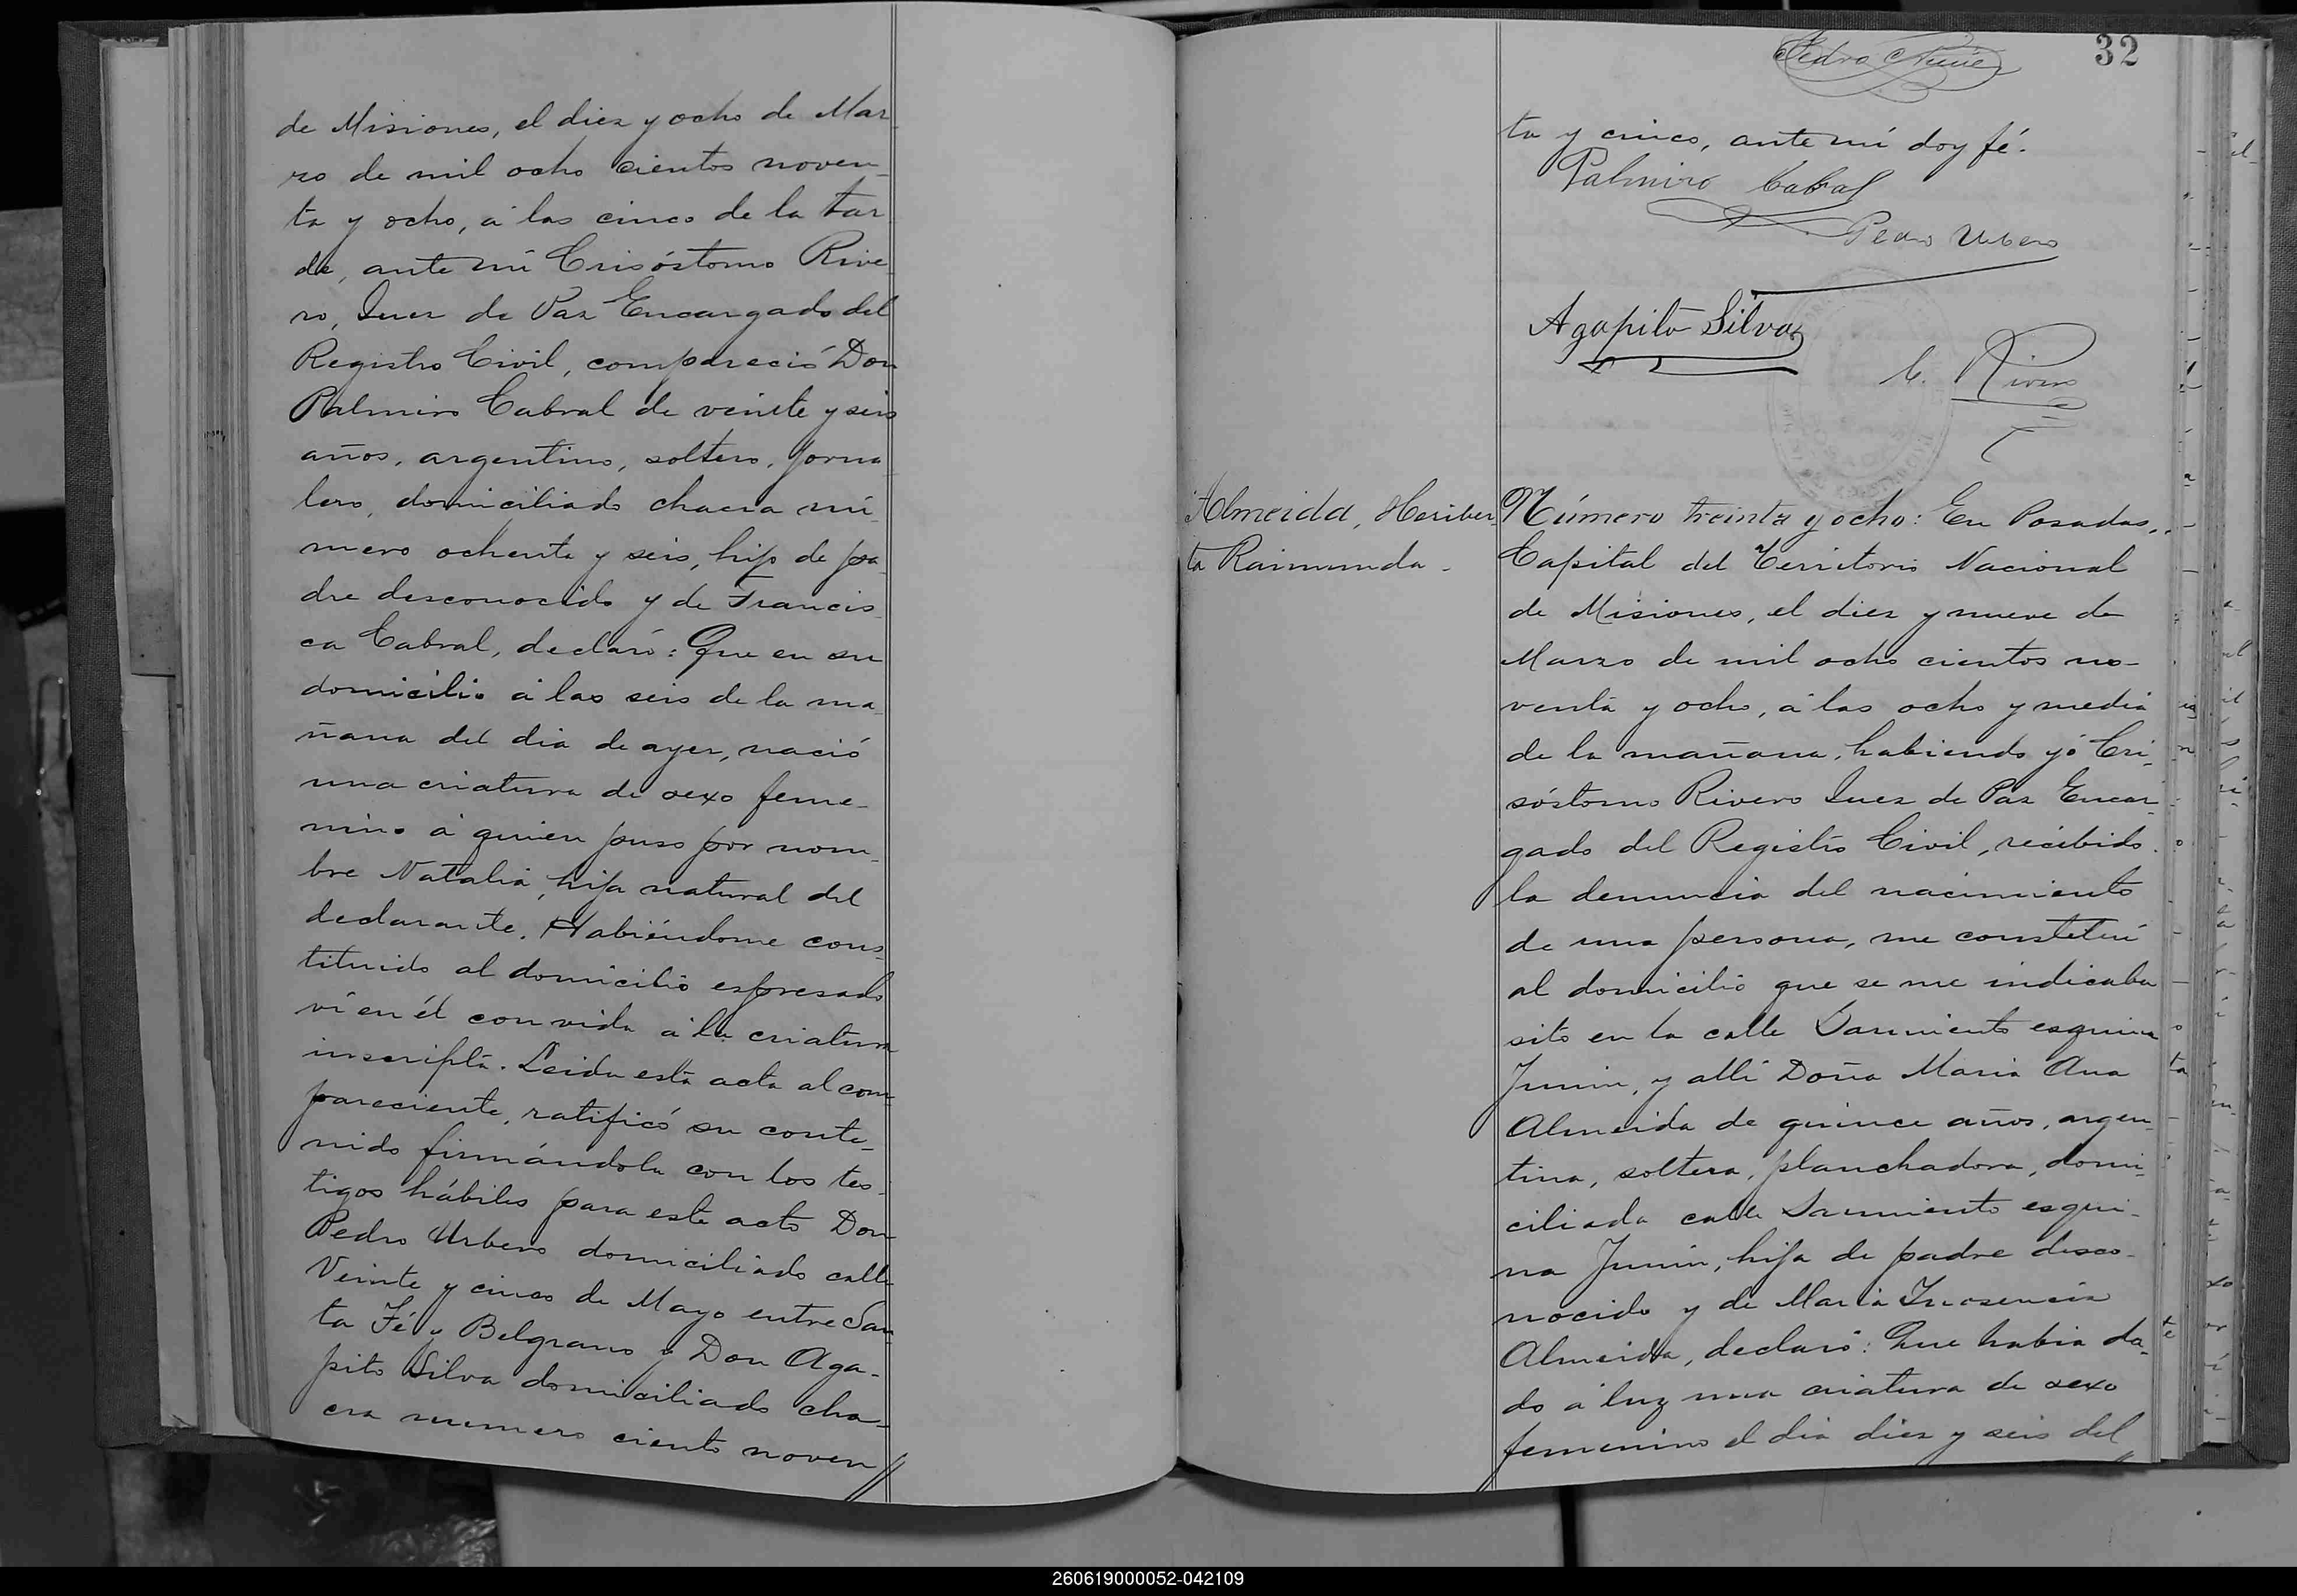 de Misiones, el diez y ocho de Mar
zo de mil ocho cientos noven-
ta y ocho, á las cinco de la tar
de, ante mí Crisóstomo Rive
ro, Juez de Paz Encargado del
Registro Civil, compareció Don
Palmiro Cabral de veinte y seis
años, argentino, soltero, jorna
lero, domiciliado chacra nú-
mero ochenta y seis, hijo de pa-
dre desconocido y de Francis
ca Cabral, declaró: Que en su
domicilio á las seis de la ma
ñana del dia de ayer, nació
una criatura de sexo feme-
nino á quien puso por nom-
bre Natalia, hija natural del
declarante. Habiéndome cons-
tituido al domicilio espresado
ví en él con vida á la criatura
inscripta. Leida esta acta al com-
pareciente, ratificó su conte-
nido firmándola con los tes-
tigos hábiles para este acto Don
Pedro Urbero domiciliado calle
Veinte y cinco de Mayo entre San-
ta Fé y Belgrano y Don Aga-
pito Silva domiciliado cha-
cra numero ciento noven//
Pedro Nuñez
32
ta y cinco, ante mí doy fé.
Palmiro Cabral
Pedro Urbero
Agapito Silva
C. Rivero
Almeida, Heriber
ta Raimunda.
Número treinta y ocho: En Posadas,
Capital del Territorio Nacional
de Misiones, el diez y nueve de
Marzo de mil ocho cientos no-
venta y ocho, á las ocho y media
de la mañana, habiendo yó Cri-
sóstomo Rivero Juez de Paz Encar-
gado del Registro Civil, recibido
la denuncia del nacimiento
de una persona, me constituí
al domicilio que se me indicaba
sito en la calle Sarmiento esquina
Junin, y allí Doña Maria Ana
Almeida de quince años, argen-
tina, soltera, planchadora, domi-
ciliada calle Sarmiento esqui-
na Junin, hija de padre desco-
nocido y de Maria Inosencia
Almeida, declaró: Que habia da-
do á luz una criatura de sexo
femenino el dia diez y seis del //
260619000052-042109